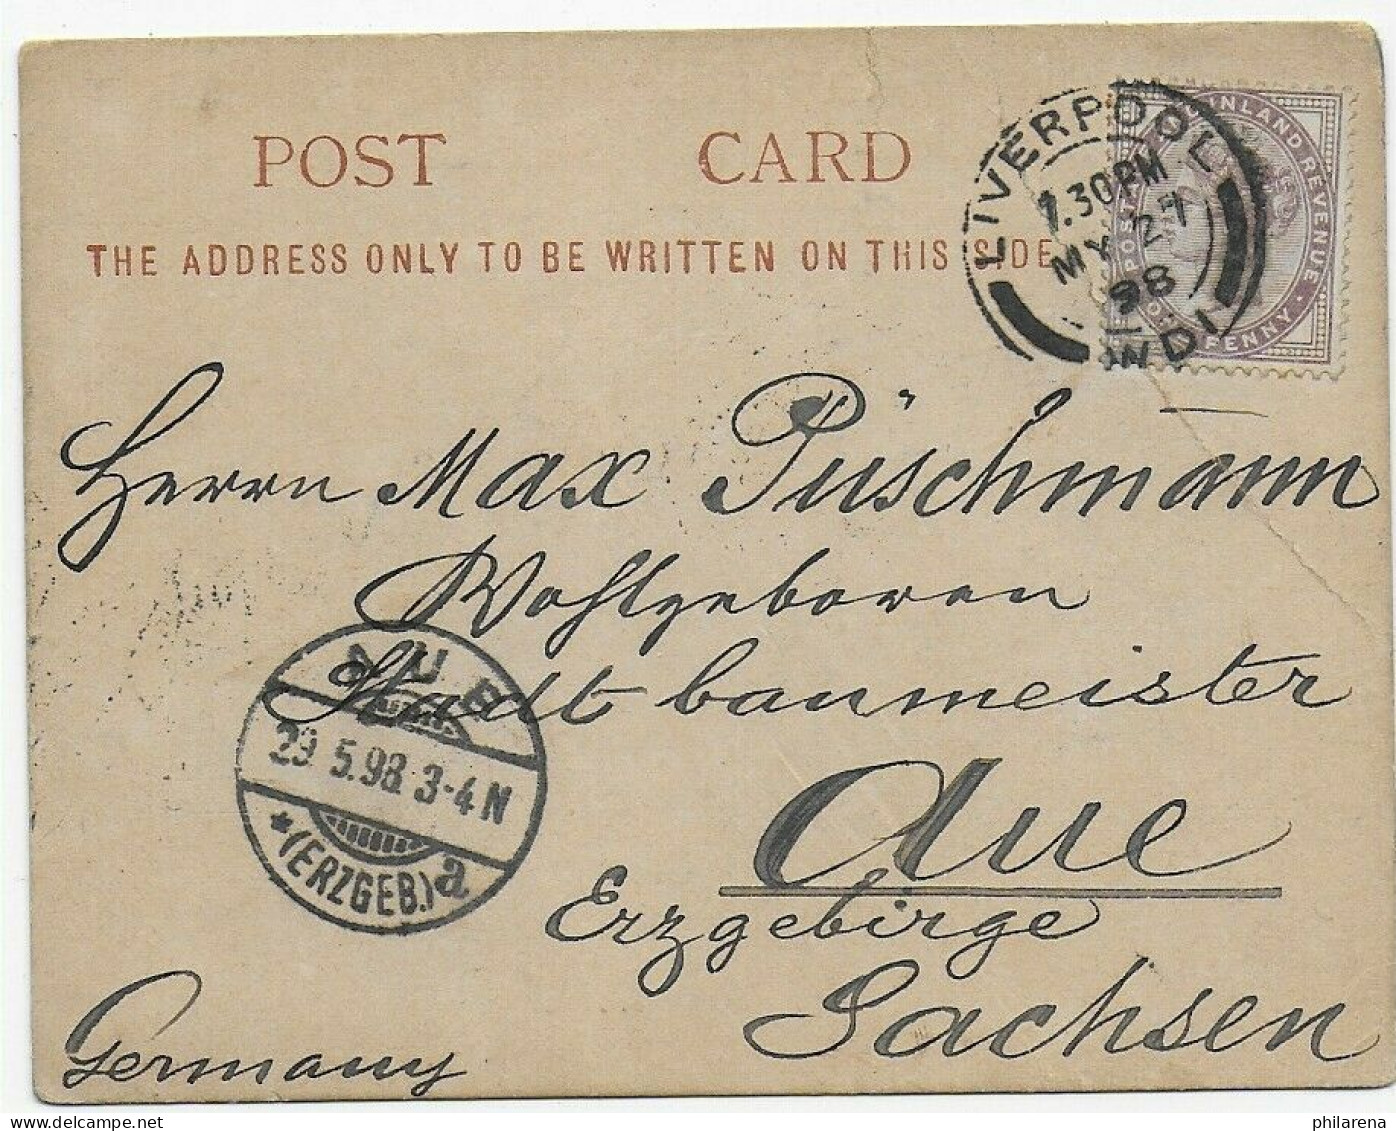 POST CARD
THE ADDRESS ONLY TO BE WRITTEN ON THIS SIDE
LIVERPOOL
7.30PM
MY 27
98
INLAND REVENUE
PENNY
Herrn Max Püschmann
Wohlgeboren
Stadtbaumeister
Aue
Erzgebirge
Sachsen
Germany
AUE
29 5.98 3-4 N
*(ERZGEB.) a
philarena.com